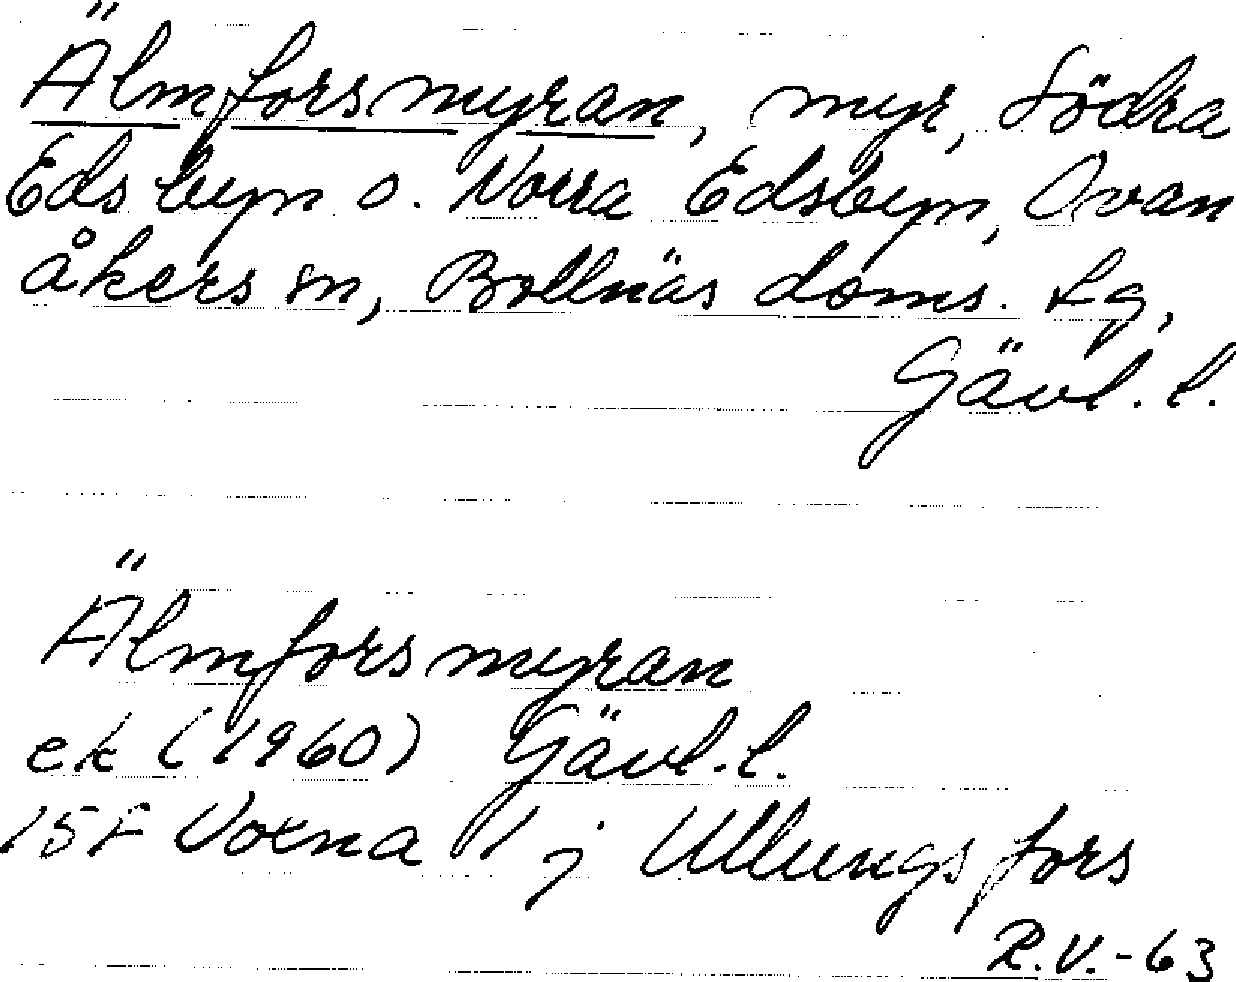 Älmforsmyran, myr, Södra
Edsbyn o. Norra Edsbyn, Ovan
åkers sn, Bollnäs doms. Lg,
Gävl. l.
Älmforsmyran
ek (1960) Gävl. l.
15F Voxna 1 j Ullungsfors
R.V.-63